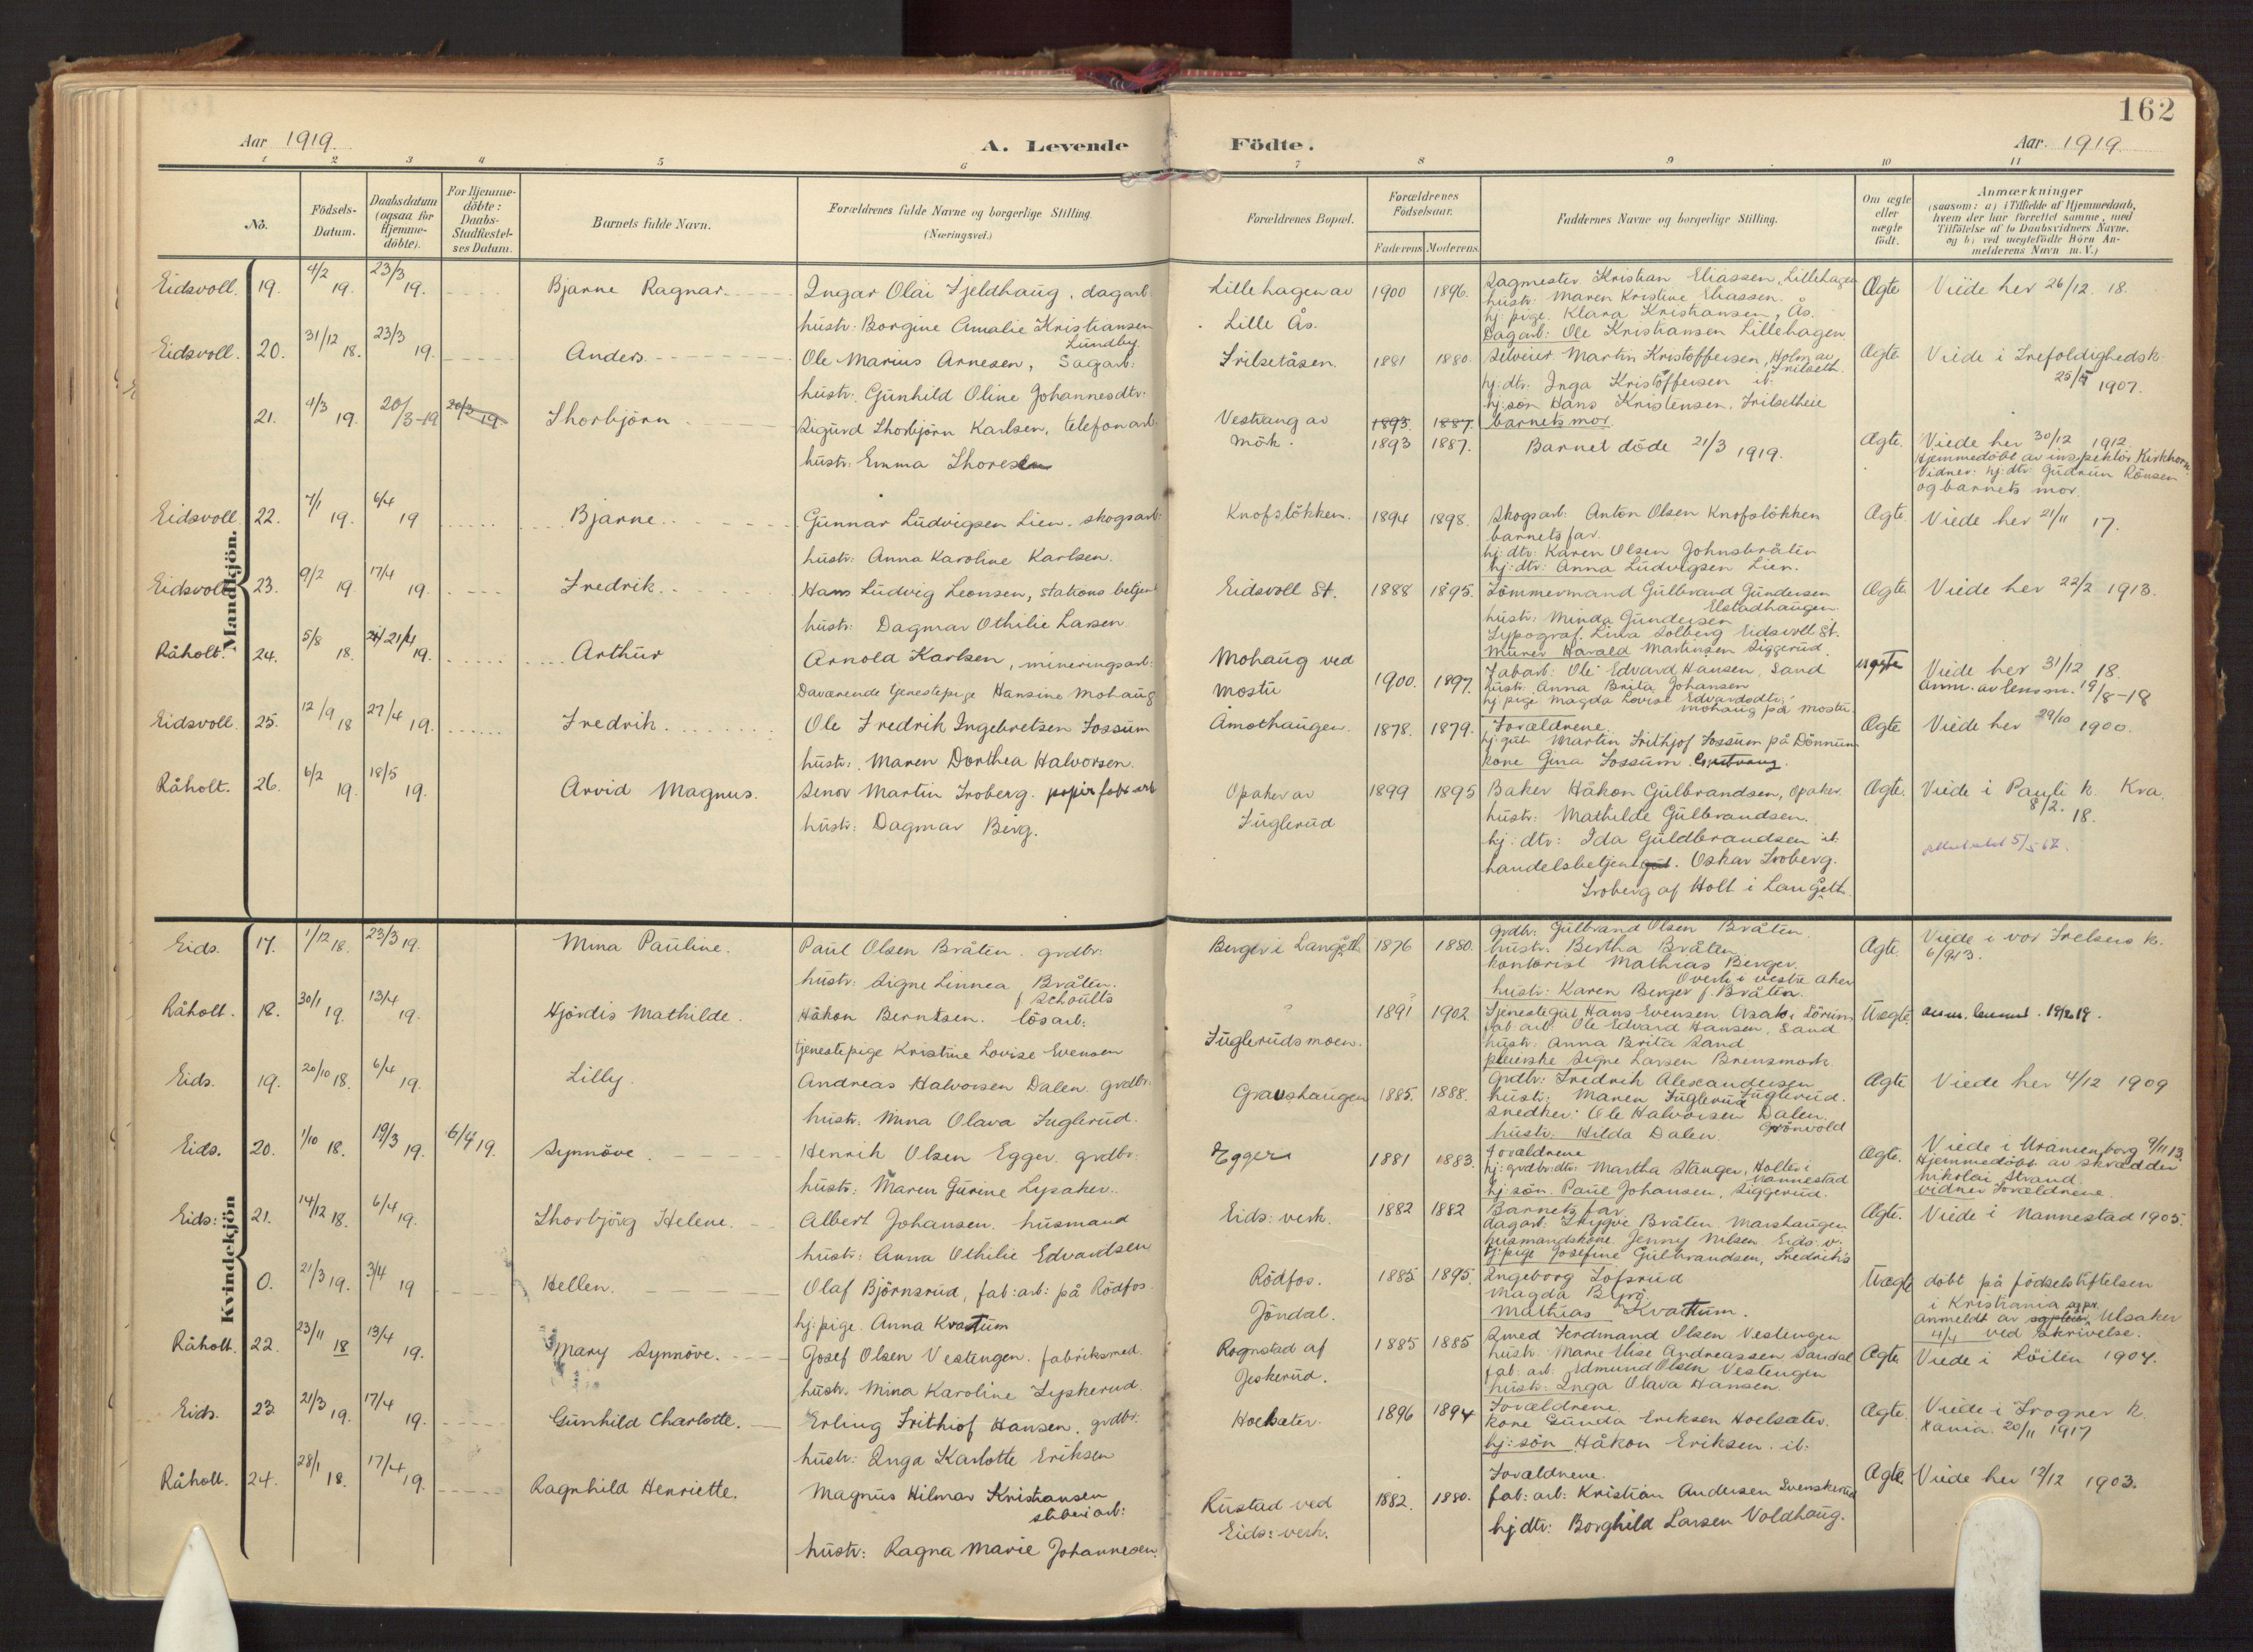 162
Aar 1919.
A. Levende
Födte.
Aar. 1919
1 2 3 4 5 6 7 8 9 10 11
No.
Födsels-
Datum.
Daabsdatum
(ogsaa for
Hjemme-
döbte).
For Hjemme-
döbte:
Daabs-
Stadfestel-
ses Datum.
Barnets fulde Navn.
Forældrenes fulde Navne og borgerlige Stilling.
(Næringsvei.)
Forældrenes Bopæl.
Forældrenes
Födselsaar.
Faderens Moderens
Faddernes Navne og borgerlige Stilling.
Om ægte
eller
uægte
födt.
Anmærkninger
(saasom: a) i Tilfælde af Hjemmedaab,
hvem der har forrettet samme, med
Tilföielse af to Daabsvidners Navne.
og b) ved uægtefödte Börn An-
melderens Navn m. V.)
Mandkjön.
Eidsvoll. 19. 4/2 19. 23/3 19. Bjarne Ragnar.
Ingar Olai Fjeldhaug, dagarb.
hustr: Borgine Amalie Kristiansen
Lillehagen av
Lille Ås.
1900 1896.
Sagmester Kristian Eliassen, Lillehagen
hustr: Maren Kristine Eliassen.
hj: pige. Klara Kristiansen, Ås.
Dagarb: Ole Kristiansen Lillehagen
Ægte Viede her 26/12. 18.
Eidsvoll. 20. 31/12 18. 23/3 19. Anders
Lundby
Ole Marius Arnesen, Sagarb:
hustr: Gunhild Oline Johannesdtr:
Frilsetåsen. 1881 1880.
Selveier Martin Kristoffersen, Holm av
Frilseth.
hj: dtr: Inga Kristoffersen ib:
hj: sön Hans Kristensen, Frilsetheie
Ægte Viede i Trefoldighedsk.
25/5 1907.
21. 4/3 19. 20/3-19 20/3 19. Thorbjörn
Sigurd Thorbjörn Karlsen, telefonarb.
hustr: Emma Thoresen
Vestvang av
Mörk.
1893. 1887.
1893 1887.
barnets mor.
Barnet döde 21/3 1919.
Ægte. Viede her 30/12 1912.
Hjemmedöbt av inspektör Kirkhorn.
Vidner: hj: dtr: Gudrun Rönsen
og barnets mor.
Eidsvoll 22. 7/1 19. 6/4 19 Bjarne
Gunnar Ludvigsen Lien. skogsarb:
hustr: Anna Karoline Karlsen.
Knofslökken. 1894 1898.
Skogsarb: Anton Olsen Knofslökken
barnets far.
hj: dtr: Karen Olsen Johnsbråten
hj: dtr: Anna Ludvigsen Lien.
Ægte. Viede her 21/11 17.
Eidsvoll 23. 9/2 19 17/4 19. Fredrik.
Hans Ludvig Leonsen, stations betjent
hustr: Dagmar Othilie Larsen.
Eidsvoll St. 1888 1895.
Tömmermand Gulbrand Gundersen
Elstadhaugen.
hustr: Minda Gundersen
Typograf. Lina Solberg Eidsvoll St.
Murer Harald Martinsen Siggerud.
Ægte. Viede her 22/2 1913.
Råholt. 24. 5/8 18. 21/4 19. Arthur
Arnold Karlsen, mineringsarb:
Daværende tjenestepige Hansine Mohaug
Mohaug ved
Mostu
1900. 1897.
Fabarb: Ole Edvard Hansen, Sand
hustr: Anna Brita Johansen
hj: pige Magda Lovise Edvardsdtr:
Mohaug på Mostu
uægte Viede her 31/12 18.
Anm. av lensm. 19/8-18
Eidsvoll 25. 12/9 18 27/4 19. Fredrik.
Ole Fredrik Ingebretsen Fossum
hustr: Maren Dorthea Halvorsen.
Åmothaugen. 1878. 1879.
Forældrene.
hj: gut Martin Frithjof Fossum på Dönnum
kone Gina Fossum
Ægte Viede her 29/10 1900.
Råholt. 26. 6/2 19. 18/5 19. Arvid Magnus.
Senor Martin Troberg. papir fabr arb
hustr: Dagmar Berg.
Opaker av
Fuglerud
1899 1895
Baker Håkon Gulbrandsen, Opaker.
hustr: Mathilde Gulbrandsen.
hj: dtr: Ida Guldbrandsen ib:
handelsbetjent Oskar Troberg.
Troberg af Holt i Langseth.
Ægte. Viede i Pauli k. Kra.
8/2. 18.
5/5 62.
Kvindekjön
Eids. 17. 1/12 18. 23/3 19. Mina Pauline.
Paul Olsen Bråten. grdbr:
hustr: Signe Linnea Bråten.
f Schoults
Berger i Langseth. 1876 1880.
Grdbr: Gulbrand Olsen Bråten.
hustr: Bertha Bråten
kontorist Mathias Berger.
Overli i vestre aker
hustr: Karen Berger f. Bråten.
Ægte. Viede i vor Frelsers k.
6/9 13.
Råholt. 18. 30/1 19. 13/4 19. Hjördis Mathilde.
Håkon Berntsen. lösarb:
tjenestepige Kristine Lovise Evensen
Fuglerudsmoen. 1891 1902
Tjenestegut Hans Evensen Asak i Sörum
fab: arb: Ole Edvard Hansen, Sand
hustr: Anna Brita Sand
pleierske Signe Larsen Brensmork
Uægte. anm. lensm. 19/2 19.
Eids. 19. 20/10 18. 6/4 19. Lilly.
Andreas Halvorsen Dalen. grdbr:
hustr: Mina Olava Fuglerud.
Gravshaugen 1885. 1888.
Grdbr: Fredrik Alexandersen
Fuglerud.
hustr: Maren Fuglerud
snedker: Ole Halvorsen Dalen.
Grönvold
hustr: Hilda Dalen.
Ægte Viede her 4/12 1909
Eids. 20. 1/10 18. 19/3 19. 6/4 19. Synnöve.
Henrik Olsen Egger. grdbr:
hustr: Maren Gurine Lysaker.
Egger 1881 1883.
Forældrene
hj: grdbr: dtr: Martha Stanger, Holter i
Nannestad
hj: sön. Paul Johansen, Siggerud.
Ægte. Viede i Uranienborg 9/11 13.
Hjemmedöbt av skrædder
Nikolai Strand.
vidner Forældrene.
Eids: 21. 14/12 18. 6/4 19. Thorbjörg Helene.
Albert Johansen. husmand
hustr: Anna Othilie Edvardsen
Eids: verk. 1882 1882
Barnets far.
dagarb: Trygve Bråten Marshaugen
husmandskone. Jenny Nilsen. Eids: v:
tj: pige Josefine Gulbrandsen, Fredriks
Ægte. Viede i Nannestad 1905.
0. 21/3 19. 3/4 19 Hellen.
Olaf Björnsrud, fab: arb: på Rödfos.
hj: pige. Anna Kvattum
Rödfos.
Jöndal.
1885 1895.
Ingeborg Lofsrud
Magda Berg
Mathias Kvattum.
Uægte döbt på födselstiftelsen
i Kristiania
Anmeldt av Ulsaker
4/4 ved skrivelse.
Råholt. 22. 23/11 18 13/4 19. Mary Synnöve.
Josef Olsen Vestengen. fabriksmed.
hustr. Mina Karoline Lyskerud.
Rognstad af
Jeskerud.
1885 1885
Smed Ferdinand Olsen Vestengen
hustr: Marie Elise Andreassen Sandal
fab: arb: Edmund Olsen Vestengen
hustr: Inga Olava Hansen.
Ægte Viede i Röiken 1904.
Eids. 23. 21/3 19. 17/4 19. Gunhild Charlotte.
Erling Frithiof Hansen. grdbr:
hustr: Inga Karlotte Eriksen
Hoelsæter. 1896 1894
Forældrene.
kone Gunda Eriksen Hoelsæter.
hj: sön Håkon Eriksen. ib:
Ægte. Viede i Frogner k.
Xania. 20/11 1917
Råholt. 24. 28/1 18. 17/4 19. Ragnhild Henriette.
Magnus Hilmar Kristiansen
sliberiarb:
hustr: Ragna Marie Johannesen.
Rustad ved
Eids: verk.
1882. 1880.
Forældrene.
fab: arb: Kristian Andersen Svenskerud
hj dtr: Borghild Larsen Voldhaug.
Ægte Viede her 12/12 1903.